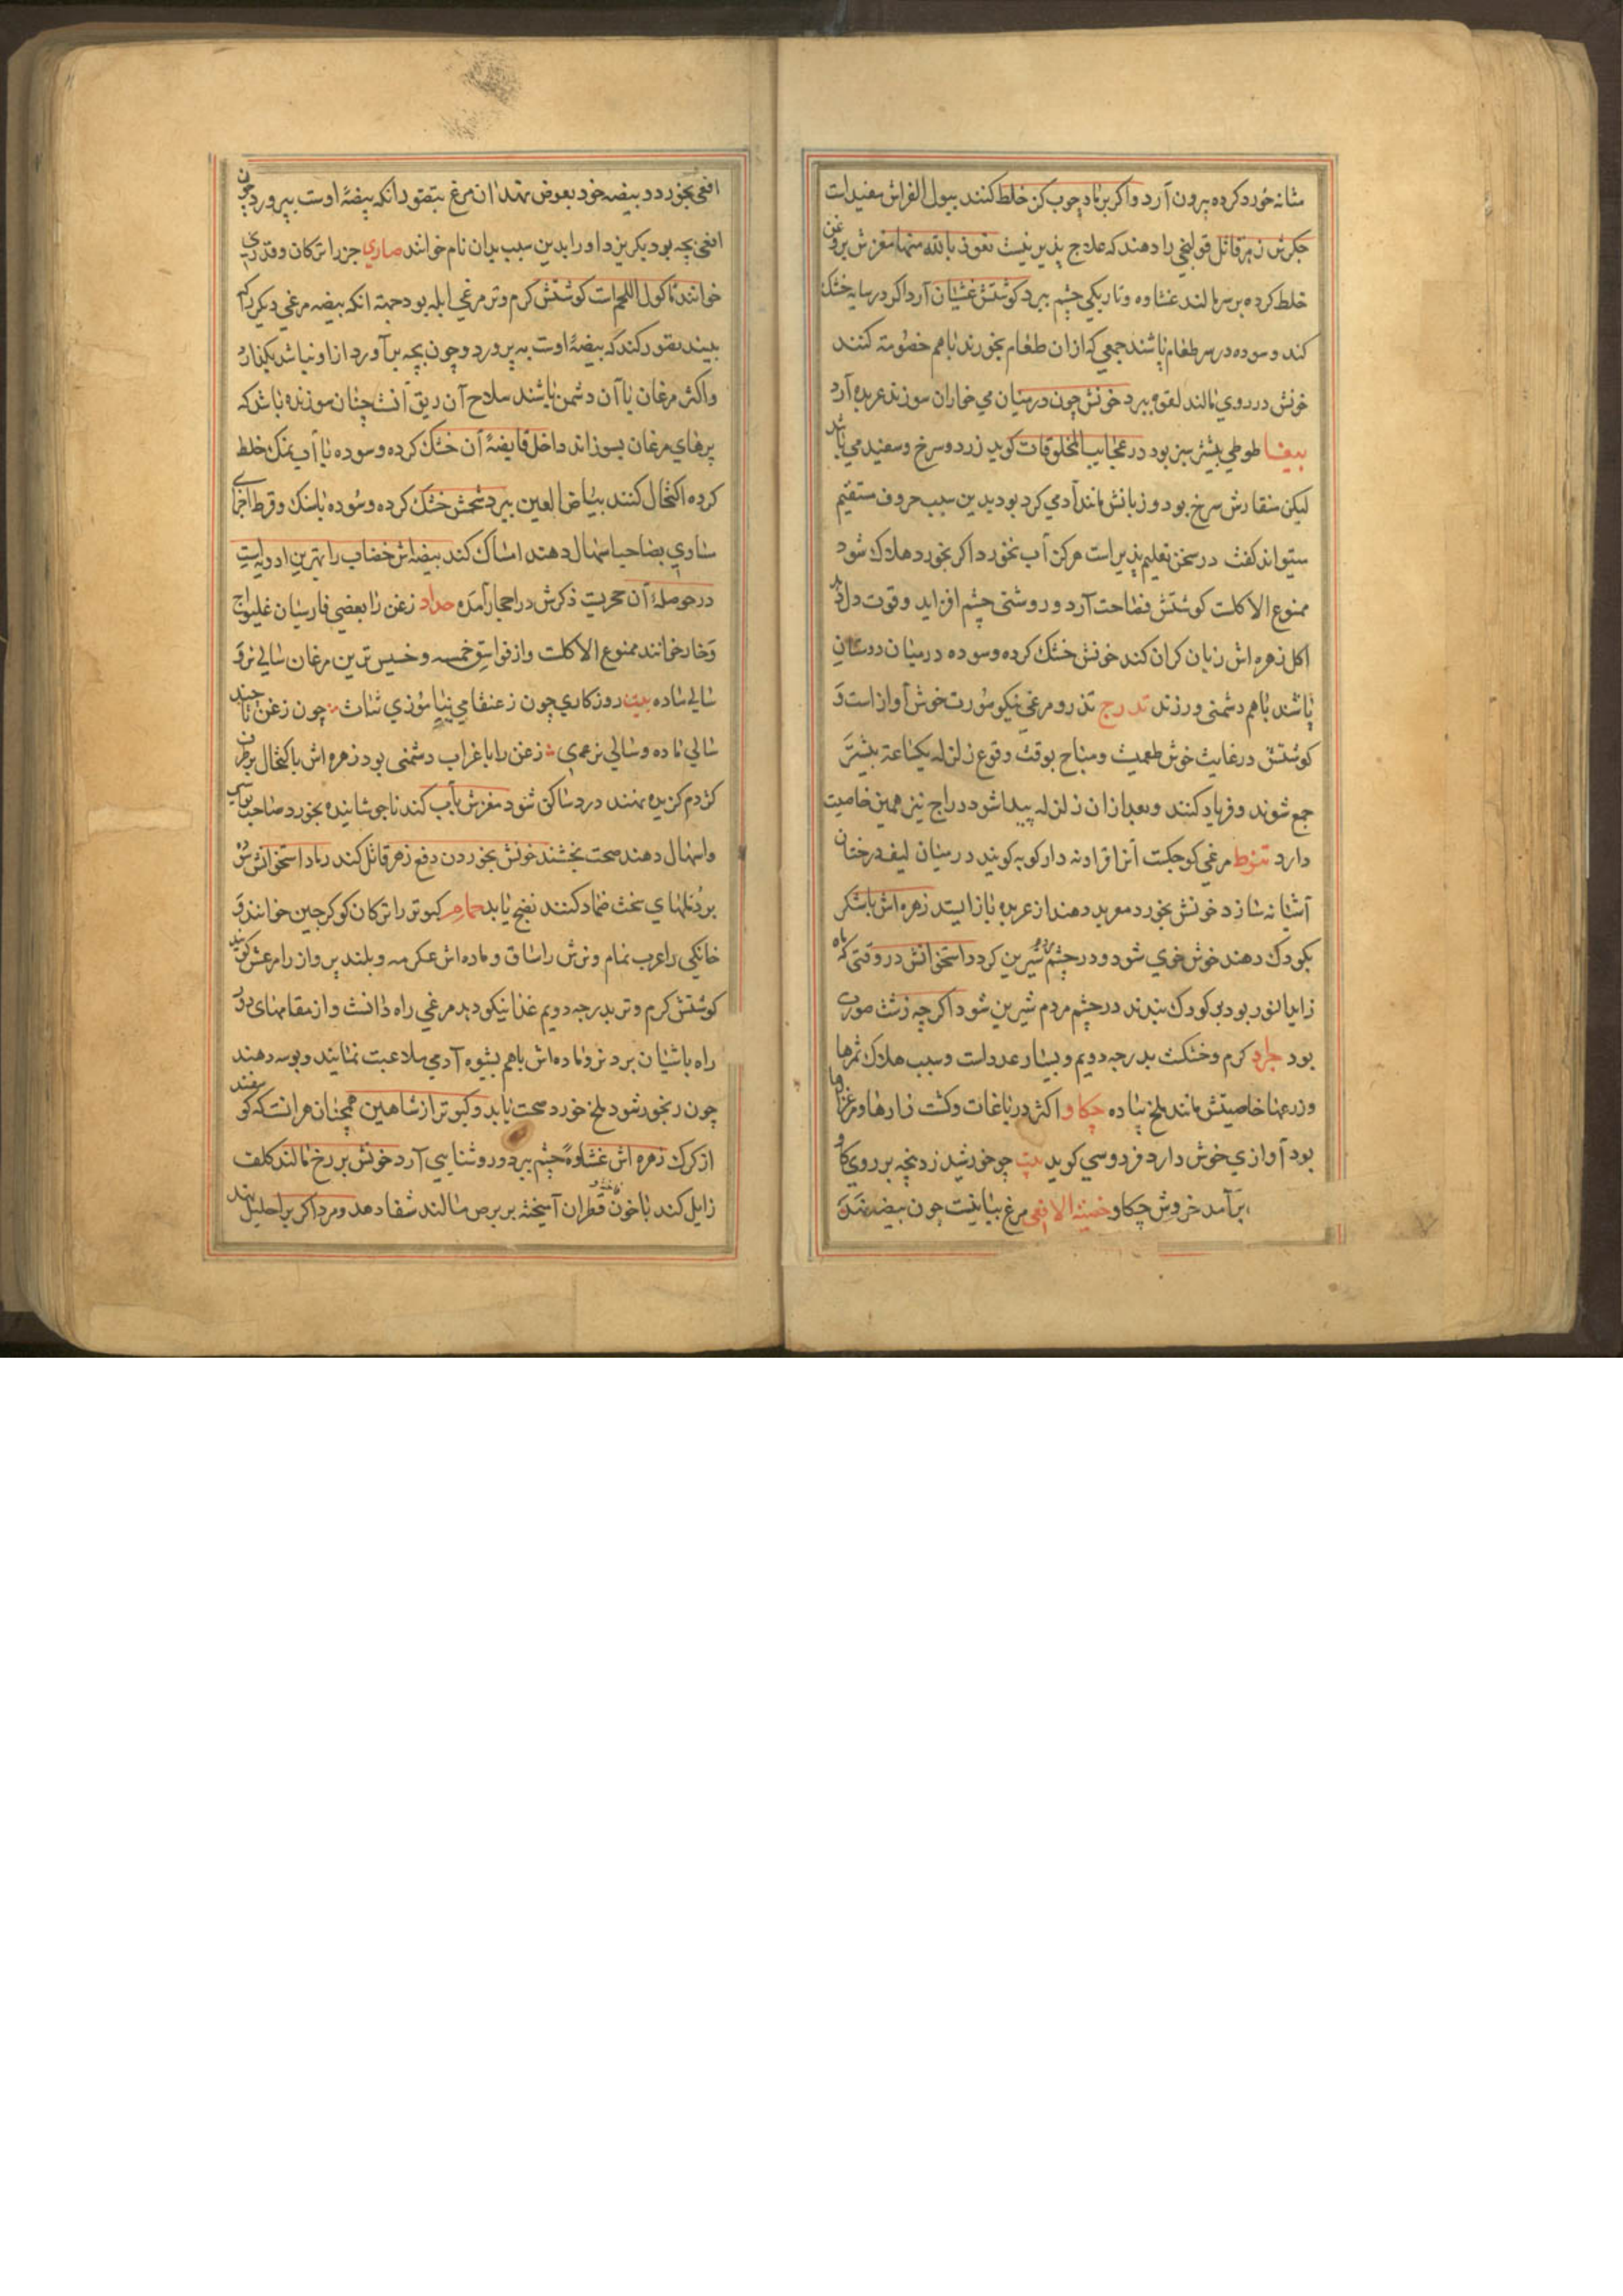 مثانه خورد کرده بیرون آرد و اکر برماد چوب کز خلط کنند ببول الفراش مفیدات
جکرش زهر قاتل قولنجی را دهند که علاج پذیر نیست نعوذ بالله منها مغزش بروغن
خلط کرده بر سر مالند غشاوه و تاریکی چشم ببرد کوشتش غشیان آرد اکر در سایه خشک
کند و سوده در سر طعام پاشند جمعی که ازان طعام بخورند باهم خصومة کنند
خونش در روی مالند لقوه ببرد خونش چون در میان می خاران سوزند عربده آرد
ببغا طوطی بیشتر سبز بود در عجایب المخلوقات کوید زرد و سرخ و سفید می باشد
لیکن منقارش سرخ بود و زبانش مانند آدمی کرد بود بدین سبب حروف مستقیم
میتواند کفت در سخن تعلیم پذیر است هرکز آب نخورد اکر بخورد هلاک شود
ممنوع الاکلت کوشتش فصاحت آرد و روشنی چشم افزاید و قوت دل دهد
اکل زهره اش زبان کران کند خونش خشک کرده و سوده در میان دوستان
پاشند باهم دشمنی ورزند تدرج تذرو مرغی نیکو صورت خوش آواز است و
کوشتش در غایت خوش طعمیت و مباح بوقت وقوع زلزله یکساعة بیشتر
جمع شوند و فریاد کنند و بعد ازان زلزله پیدا شود دراج نیز همین خاصیت
دارد تنوط مرغی کوچکت آنرا دارکوبه کویند در میان لیف درختان
آشیانه سازد خونش بخورد معربد دهند از عربده باز ایستد زهره اش باشکر
بکودک دهند خوش خوی شود و در چشم مردم شیرین کردد استخوانش در وقتی که ماه
زاید النور بود بر کودک بندند در چشم مردم شیرین شود اکرچه زشت صورت
بود جراد کرم و خشکست بدرجه دویم و بسیار عدداست و سبب هلاک ثمرها
و زرعها خاصیتش مانند ملخ پیاده چکاو اکثر در باغات و کشت زارها و مرغزارها
بود آوازی خوش دارد فردوسی کوید بیت چو خورشید زد پنجه بر روی کاو
برآمد خروش چکاو خضنة الافعی مرغ بیابانیست چون بیضه نهد
افعی بخورد و بیضه خود بعوض نهد ان مرغ بتصور انکه بیضهٔ اوست بپرورد چون
افعی بچه بود بکریزد اورا بدین سبب بدان نام خوانند حباری جرز را ترکان و قدری
خوانند ماکول اللحم است کوشتش کرم و تر مرغی ابله بود جهة انکه بیضه مرغی دیکر را که
بیند تصور کند که بیضهٔ اوست به پرورد و چون بچه برآورد از او نباشد بکذارد
و اکثر مرغان با آن دشمن باشند سلاح آن ریق آنست چنان سوزنده باشد که
پرهای مرغان بسوزاند داخل قابضهٔ آن خشک کرده و سوده با آب نمک خلط
کرده اکتحال کنند بیاض العین ببرد شحمش خشک کرده و سوده باسنک و قرط اجزای
مساوی بصاحب اسهال دهند امساک کند بیضه اش خضاب را بهترین ادویه است
در حوصلهٔ آن حجریست ذکرش در احجار آمده حداد زغن را بعضی فارسیان غلیواج
و خاد خوانند ممنوع الاکلت و از فواسق خمسه و خسیس ترین مرغان سالی نر و
سالی ماده بیت روزکاری چون زعنقا می نیاموزی ثبات چون زغن تا چند
سالی ماده و سالی نری زغن را با غراب دشمنی بود زهره اش باکتحال بر طرف
کژدم کزیده نهند درد ساکن شود مغزش باب کندنا جوشانیده بخورد صاحب بواسیر
و اسهال دهند صحت بخشند خونش بخوردن دفع زهر قاتل کند رماد استخوانش
بر دملهای سخت ضماد کنند نضج یابد حمام کبوتر را ترکان کوکرجین خوانند و
خانکی را عرب تمام و نرش را ساق و ماده اش عکرمه و بلند پرواز را مرعش کویند
کوشتش کرم و تر بدرجه دویم غذا نیکو دهد مرغی راه دانست و از مقامهای دور
راه باشیان برد نر و ماده اش باهم بشیوه آدمی ملاعبت نمایند و بوسه دهند
چون رنجور شود ملخ خورد صحت یابد و کبوتر از شاهین همچنان هراسد که کوسفند
از کرک زهره اش غشاوهٔ چشم ببرد و روشنایی آرد خونش بر رخ مالند کلف
زایل کند با خون قطران آمیخته بر برص مالند شفا دهد و مرد اکر بر احلیل بندد